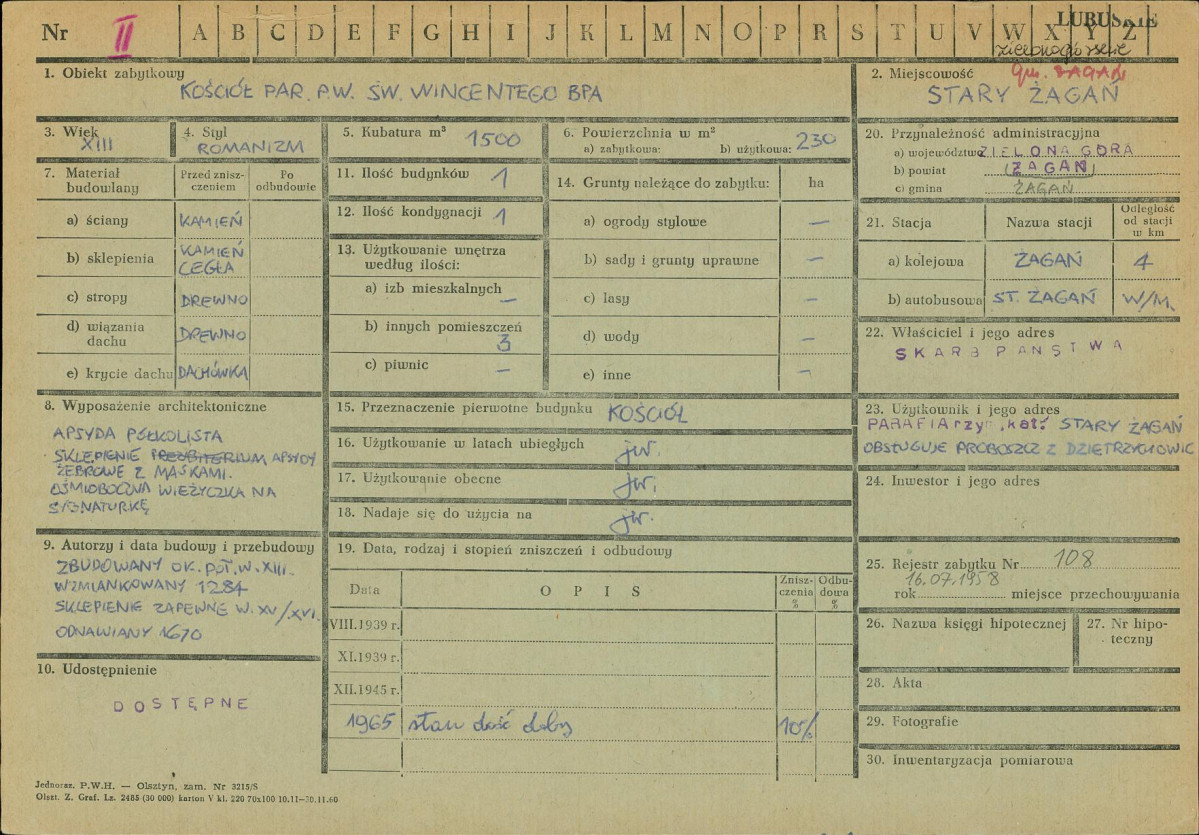 Nr II A B C D E F G H I J K L M N O P R S T U V W X Y Z
LUBUSKIE
zielonogórskie
1. Obiekt zabytkowy
KOŚCIÓŁ PAR. P.W. ŚW. WINCENTEGO BPA
2. Miejscowość
gm. ŻAGAŃ
STARY ŻAGAŃ
3. Wiek
XIII
4. Styl
ROMANIZM
5. Kubatura m³ 1500
6. Powierzchnia w m²
a) zabytkowa: b) użytkowa: 230
7. Materiał budowlany
Przed zniszczeniem
Po odbudowie
a) ściany KAMIEŃ
b) sklepienia KAMIEŃ
CEGŁA
c) stropy DREWNO
d) wiązania dachu DREWNO
e) krycie dachu DACHÓWKA
8. Wyposażenie architektoniczne
APSYDA PÓŁKOLISTA
SKLEPIENIE PREZBITERIUM APSYDY
ŻEBROWE Z MASKAMI.
OŚMIOBOCZNA WIEŻYCZKA NA
SYGNATURKĘ
9. Autorzy i data budowy i przebudowy
ZBUDOWANY OK. POŁ. W. XIII.
WZMIANKOWANY 1284
SKLEPIENIE ZAPEWNE W. XV/XVI.
ODNAWIANY 1670
10. Udostępnienie
DOSTĘPNE
11. Ilość budynków 1
12. Ilość kondygnacji 1
13. Użytkowanie wnętrza
według ilości:
a) izb mieszkalnych –
b) innych pomieszczeń
3
c) piwnic –
14. Grunty należące do zabytku: ha
a) ogrody stylowe –
b) sady i grunty uprawne –
c) lasy –
d) wody –
e) inne –
15. Przeznaczenie pierwotne budynku KOŚCIÓŁ
16. Użytkowanie w latach ubiegłych jw.
17. Użytkowanie obecne jw.
18. Nadaje się do użycia na jw.
19. Data, rodzaj i stopień zniszczeń i odbudowy
Data
O P I S
Zniszczenia %
Odbudowa %
VIII.1939 r.
XI.1939 r.
XII.1945 r.
1965 stan dość dobry 10%
20. Przynależność administracyjna
a) województwo ZIELONA GÓRA
b) powiat (ŻAGAŃ)
c) gmina ŻAGAŃ
21. Stacja
Nazwa stacji
Odległość od stacji w km
a) kolejowa ŻAGAŃ 4
b) autobusowa ST. ŻAGAŃ W/M.
22. Właściciel i jego adres
SKARB PAŃSTWA
23. Użytkownik i jego adres
PARAFIA rzy. kat. STARY ŻAGAŃ
OBSŁUGUJE PROBOSZCZ Z DZIETRZYCHOWIC
24. Inwestor i jego adres
25. Rejestr zabytku Nr 108
16.07.1958
rok miejsce przechowywania
26. Nazwa księgi hipotecznej
27. Nr hipoteczny
28. Akta
29. Fotografie
30. Inwentaryzacja pomiarowa
Jednoraz. P.W.H. — Olsztyn, zam. Nr 3215/S
Olszt. Z. Graf. Lz. 2485 (30 000) karton V kl. 220 70x100 10.11—30.11.60